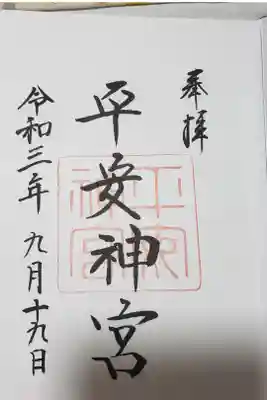 奉拝
平安神宮
令和三年九月十九日
平安神宮